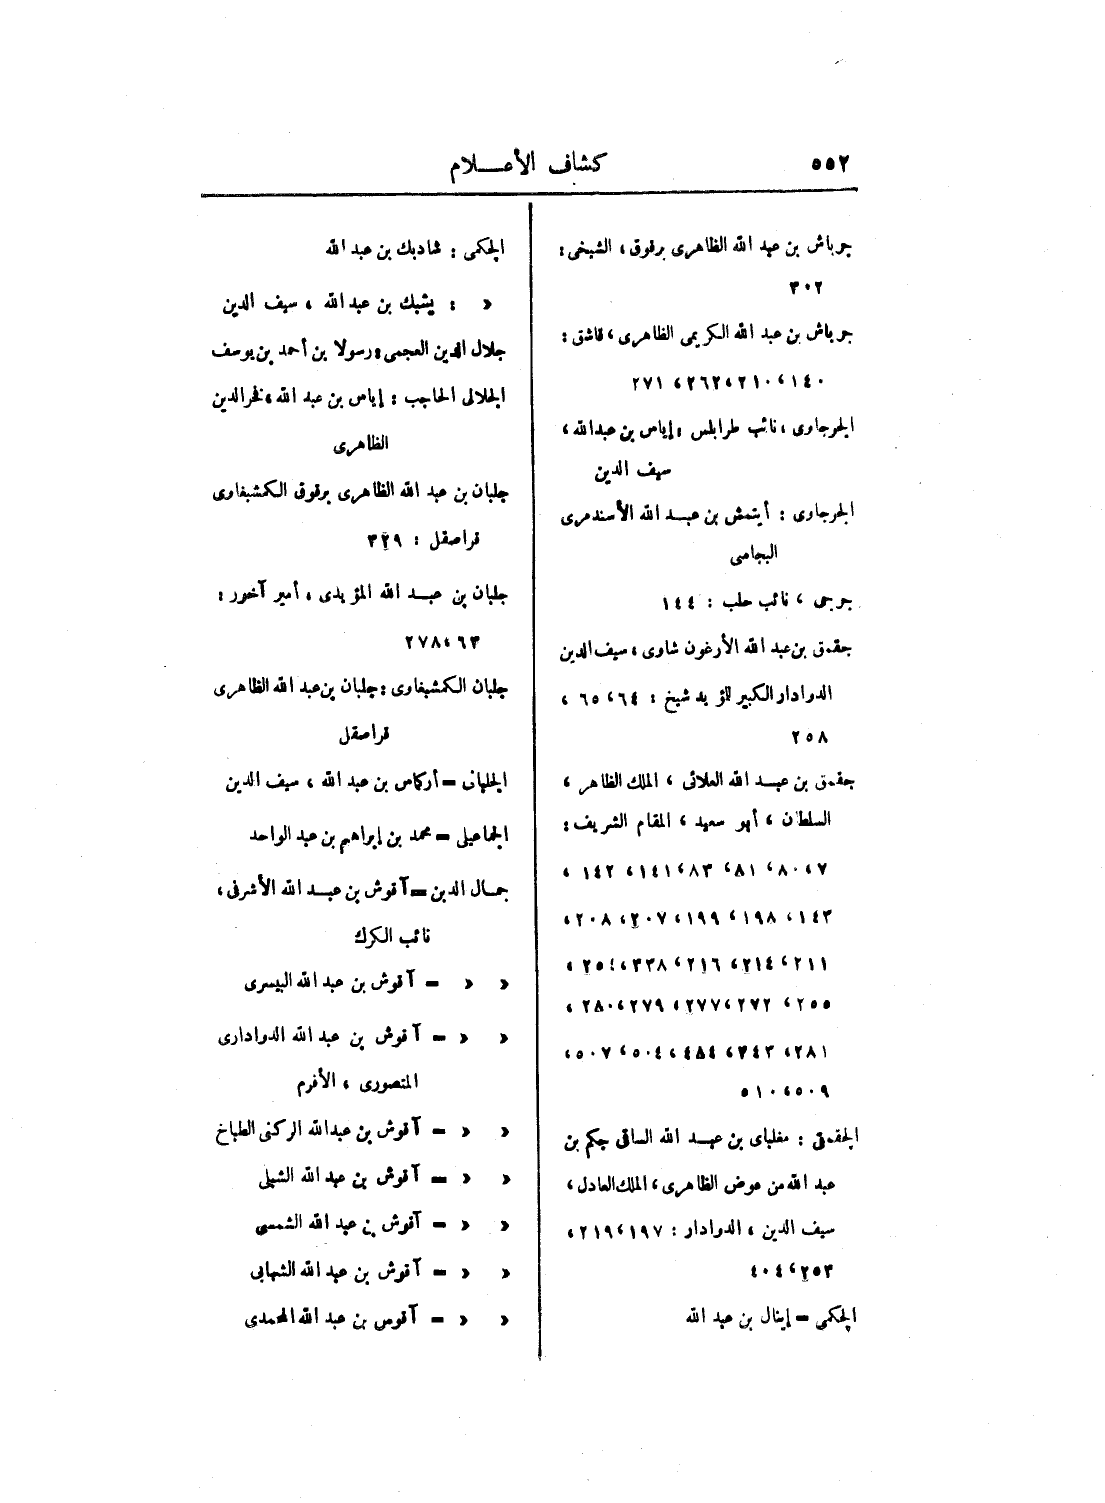 ٥٥٢
كشاف الأعـــلام
جرباش بن عبد الله الظاهرى برقوق ، الشيخى :
٣٠٢
جرباش بن عبد الله الكريمى الظاهرى ، قاشق :
١٤٠ ، ٢١٠ ، ٢٦٢ ، ٢٧١
الجرجاوى ، نائب طرابلس : إياس بن عبد الله ،
سيف الدين
الجرجاوى : أيتمش بن عبـد الله الأسندمرى
البجاسى
جرجى ، نائب حلب : ١٤٤
جقمق بن عبد الله الأرغون شاوى ، سيف الدين
الدوادار الكبير للمؤيد شيخ : ٦٤ ، ٦٥ ،
٢٥٨
جقمق بن عبـد الله العلائى ، الملك الظاهر ،
السلطان ، أبو سعيد ، المقام الشريف :
٧ ، ٨٠ ، ٨١ ، ٨٣ ، ١٤١ ، ١٤٢ ،
١٤٣ ، ١٩٨ ، ١٩٩ ، ٢٠٧ ، ٢٠٨ ،
٢١١ ، ٢١٤ ، ٢١٦ ، ٢٣٨ ، ٢٥٤ ،
٢٥٥ ، ٢٧٢ ، ٢٧٧ ، ٢٧٩ ، ٢٨٠ ،
٢٨١ ، ٣٤٣ ، ٤٨٤ ، ٥٠٤ ، ٥٠٧ ،
٥٠٩ ، ٥١٠
الجقمقى : مغلباى بن عبـد الله الساقى جكم بن
عبد الله من عوض الظاهرى ، الملك العادل ،
سيف الدين ، الدوادار : ١٩٧ ، ٢١٩ ،
٢٥٣ ، ٤٠٤
الجكمى = إينال بن عبد الله
الجكمى : شادبك بن عبد الله
« : يشبك بن عبد الله ، سيف الدين
جلال الدين العجمى : رسولا بن أحمد بن يوسف
الجلالى الحاجب : إياس بن عبد الله ، فخر الدين
الظاهرى
جلبان بن عبد الله الظاهرى برقوق الكمشبغاوى
قراصقل : ٣٢٩
جلبان بن عبـد الله المؤيدى ، أمير آخور :
٦٣ ، ٢٧٨
جلبان الكمشبغاوى : جلبان بن عبد الله الظاهرى
قراصقل
الجلبانى = أركماس بن عبد الله ، سيف الدين
الجماعيلى = محمد بن إبراهيم بن عبد الواحد
جمـال الدين = آقوش بن عبـد الله الأشرفى ،
نائب الكرك
« « = آقوش بن عبد الله البيسرى
« « = آقوش بن عبد الله الدوادارى
المنصورى ، الأفرم
« « = آقوش بن عبد الله الركنى الطباخ
« « = آقوش بن عبد الله الشبلى
« « = آقوش بن عبد الله الشمسى
« « = آقوش بن عبد الله الشهابى
« « = آقوس بن عبد الله المحمدى